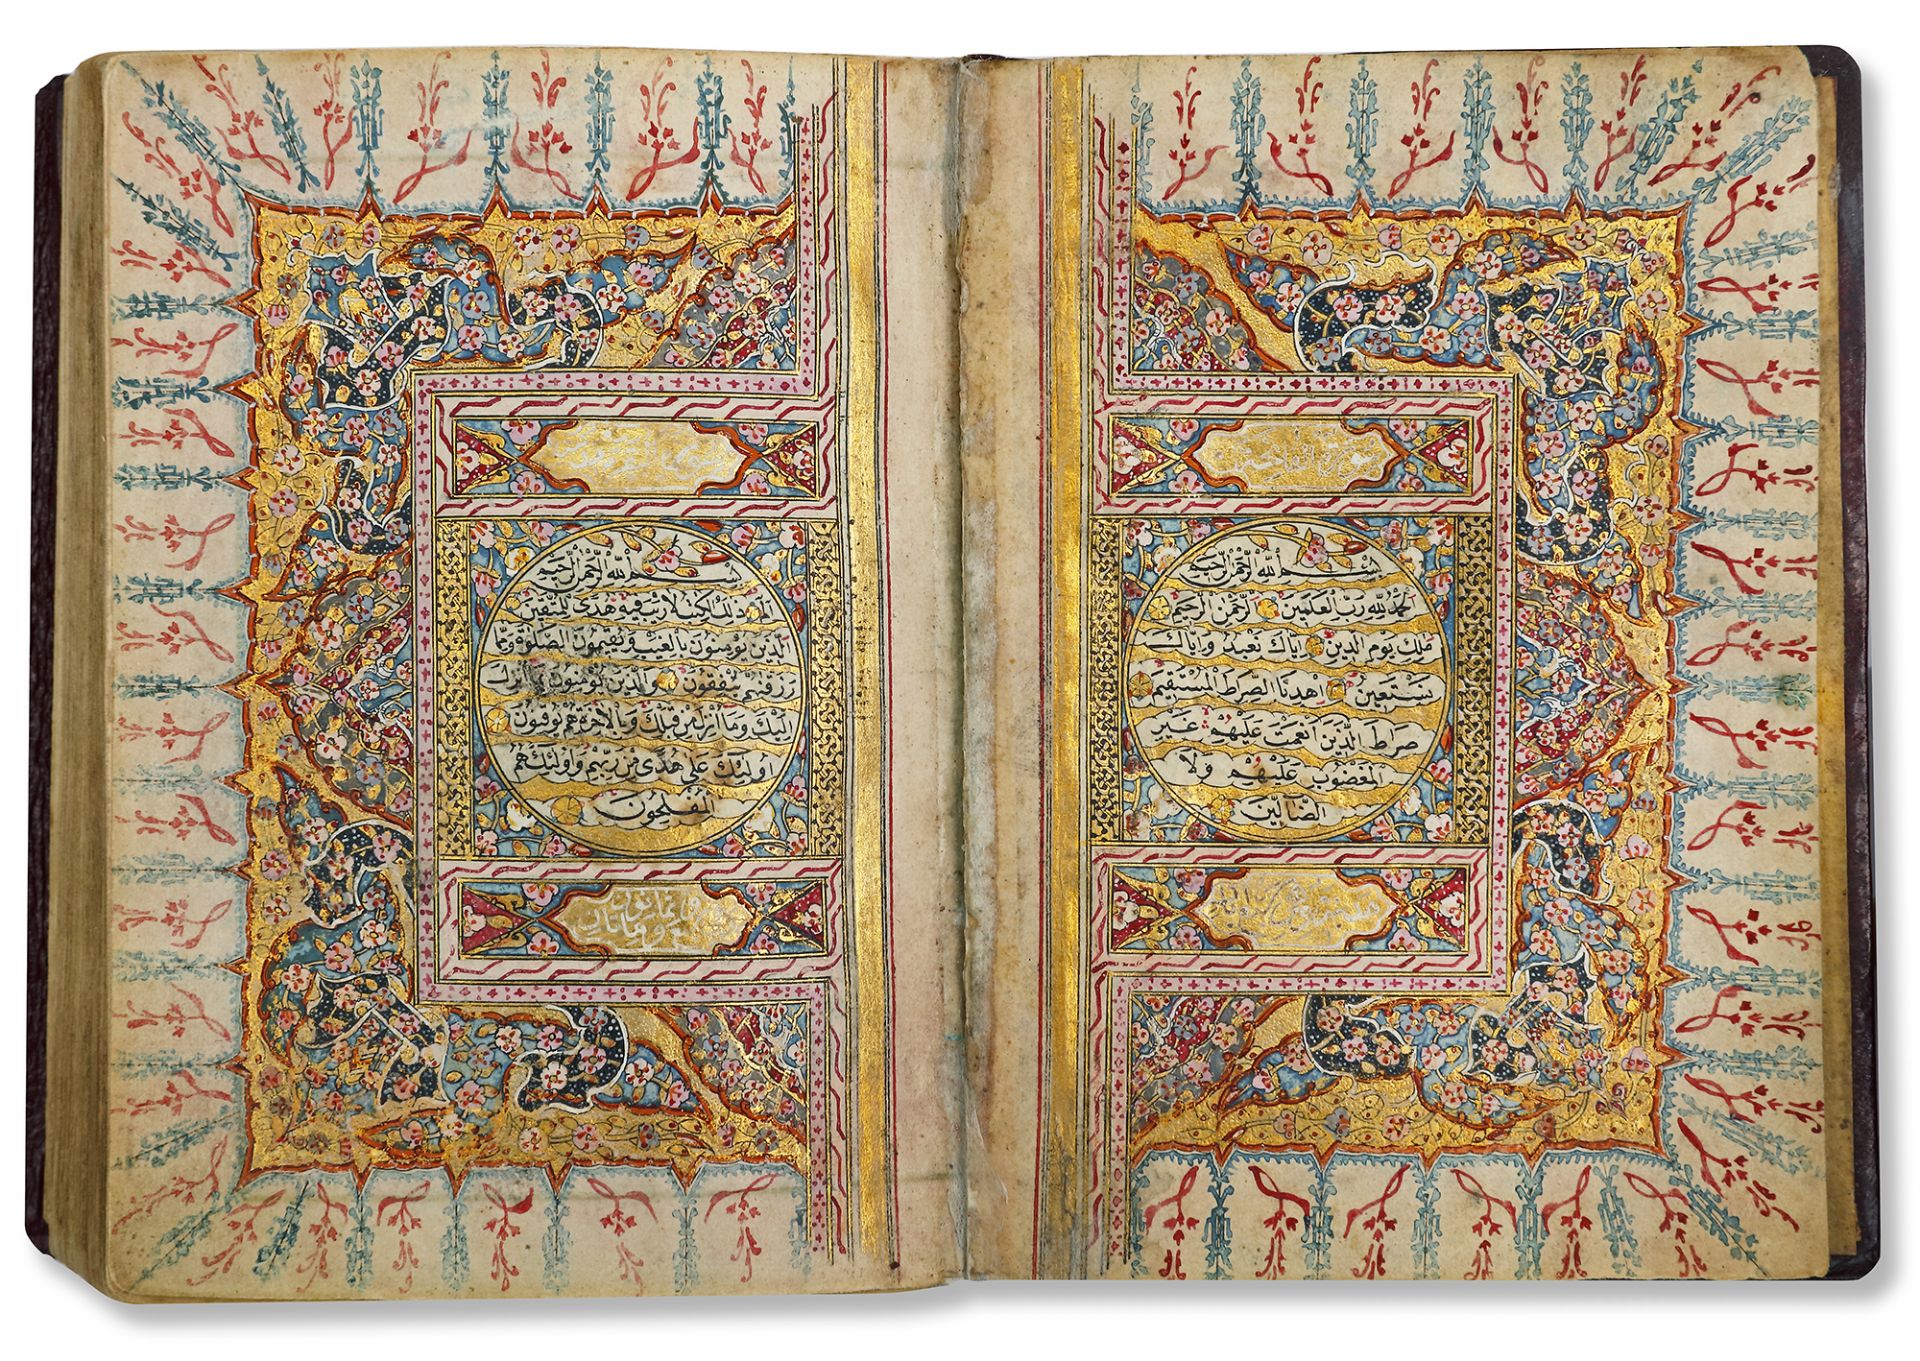 سورة الفاتحة
بسم الله الرحمن الرحيم
الحمد لله رب العلمين الرحمن الرحيم
ملك يوم الدين اياك نعبد واياك
نستعين اهدنا الصرط المستقيم
صراط الذين انعمت عليهم غير
المغضوب عليهم ولا
الضالين
بسم الله الرحمن الرحيم
الم ذلك الكتب لا ريب فيه هدى للمتقين
الذين يؤمنون بالغيب ويقيمون الصلوة ومما
رزقنهم ينفقون والذين يؤمنون بما انزل
اليك وما انزل من قبلك وبالاخرة هم يوقنون
اولئك على هدى من ربهم واولئك هم
المفلحون